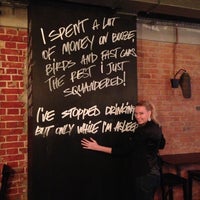 I SPENT A LOT
OF MONEY ON BOOZE,
BIRDS AND FAST CARS.
THE REST I JUST
SQUANDERED!
I'VE STOPPED DRINKING,
BUT ONLY WHILE I'M ASLEEP